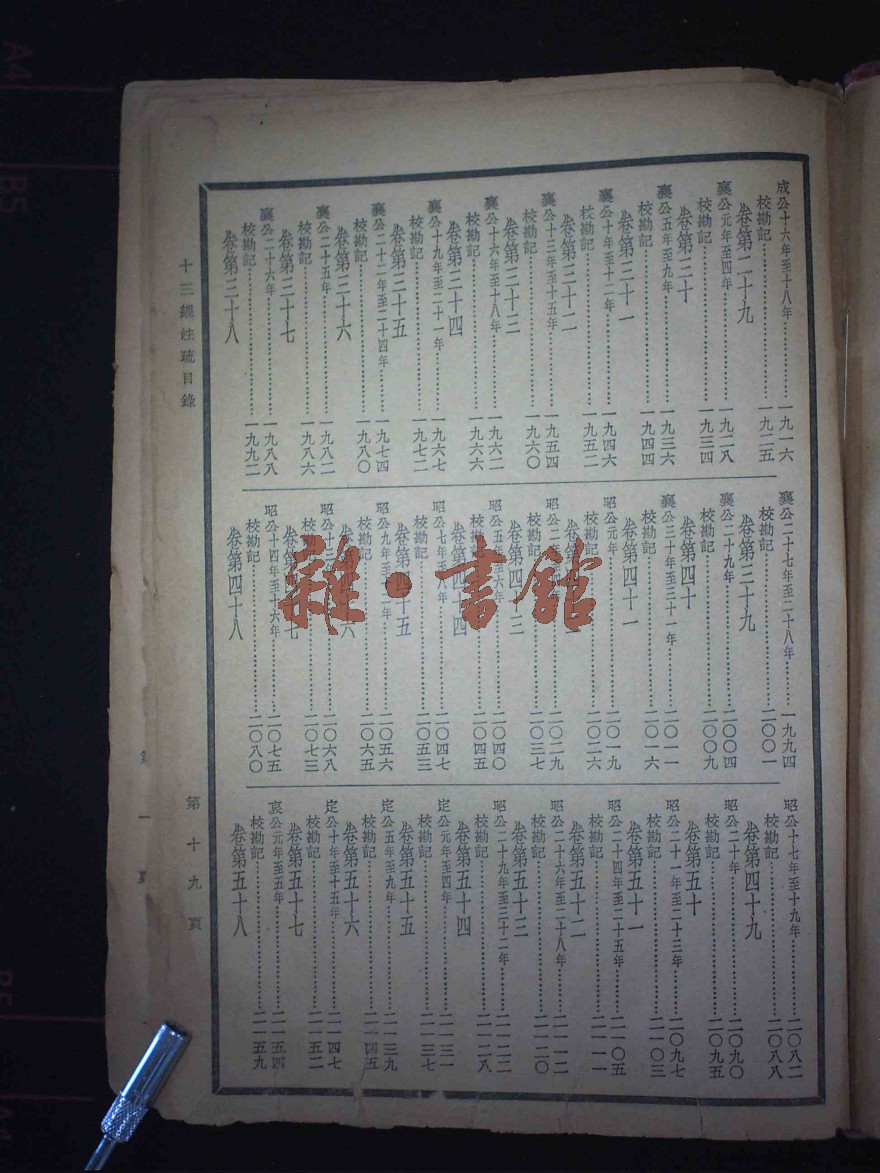 成公十六年至十八年…………一九一六
校勘記…………一九二五
卷第二十九
襄公元年至四年…………一九二八
校勘記…………一九三四
卷第三十
襄公五年至九年…………一九三六
校勘記…………一九四四
卷第三十一
襄公十年至十二年…………一九四六
校勘記…………一九五二
卷第三十二
襄公十三年至十五年…………一九五四
校勘記…………一九六〇
卷第三十三
襄公十六年至十八年…………一九六二
校勘記…………一九六六
卷第三十四
襄公十九年至二十一年…………一九六七
校勘記…………一九七二
卷第三十五
襄公二十二年至二十四年…………一九七四
校勘記…………一九八〇
卷第三十六
襄公二十五年…………一九八二
校勘記…………一九八六
卷第三十七
襄公二十六年…………一九八八
校勘記…………一九九二
卷第三十八
襄公二十七年至二十八年…………一九九四
校勘記…………二〇〇一
卷第三十九
襄公二十九年…………二〇〇四
校勘記…………二〇〇九
卷第四十
襄公三十年至三十一年…………二〇一一
校勘記…………二〇一六
卷第四十一
昭公元年…………二〇一九
校勘記…………二〇二六
卷第
昭公二年…………二〇二九
校勘記…………二〇三七
卷第四十三
昭公五年至六年…………二〇四〇
校勘記…………二〇四五
卷第四十四
昭公七年至八年…………二〇四七
校勘記…………二〇五三
卷第四十五
昭公九年至二年…………二〇五六
校勘記…………二〇六五
卷第六
昭公十三…………二〇六八
校勘記…………二〇七三
卷第七
昭公十四年至十六年…………二〇七五
校勘記…………二〇八〇
卷第四十八
昭公十七年至十九年…………二〇八二
校勘記…………二〇八八
卷第四十九
昭公二十年…………二〇九〇
校勘記…………二〇九五
卷第五十
昭公二十一年至二十三年…………二〇九七
校勘記…………二一〇三
卷第五十一
昭公二十四年至二十五年…………二一〇五
校勘記…………二一一一
卷第五十二
昭公二十六年至二十八年…………二一一二
校勘記…………二一二〇
卷第五十三
昭公二十九年至三十二年…………二一二二
校勘記…………二一二八
卷第五十四
定公元年至四年…………二一三一
校勘記…………二一三七
卷第五十五
定公五年至九年…………二一三九
校勘記…………二一四五
卷第五十六
定公十年至十五年…………二一四七
校勘記…………二一五二
卷第五十七
哀公元年至五年…………二一五四
校勘記…………二一五九
卷第五十八
十三經注疏目錄
第十九頁
雜·書館